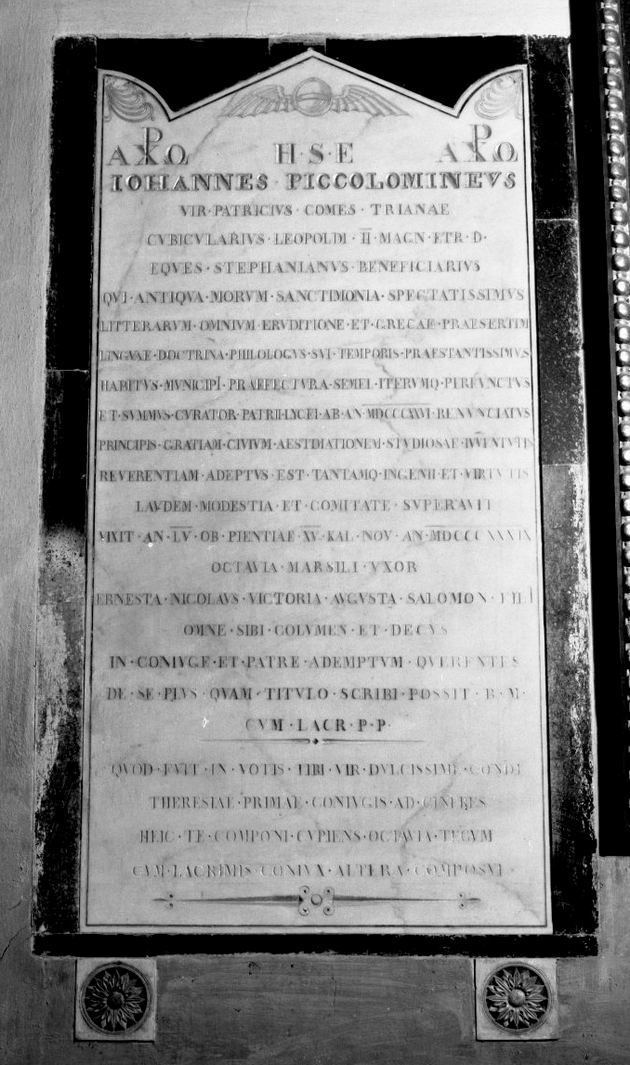 A ☧ Ω H·S·E A ☧ Ω
IOHANNES · PICCOLOMINEVS
VIR·PATRICIVS · COMES · TRIANAE
CVBICVLARIVS · LEOPOLDI · II · MAGN·ETR·D·
EQVES · STEPHANIANVS · BENEFICIARIVS
QVI·ANTIQVA·MORVM·SANCTIMONIA·SPECTATISSIMVS
LITTERARVM·OMNIVM·ERVDITIONE·ET·GRECAE·PRAESERTIM
LINGVAE·DOCTRINA·PHILOLOGVS·SVI·TEMPORIS·PRAESTANTISSIMVS
HABITVS·MVNICIPI·PRAEFECTVRA·SEMEL·ITERVMQ·PERFVNCTVS
ET·SVMMVS·CVRATOR·PATRII·LYCEI·AB·AN· RENVNCIATVS
PRINCIPIS·GRATIAM·CIVIVM·AESTIMATIONEM·STVDIOSAE·IVVENTVTIS
REVERENTIAM·ADEPTVS·EST·TANTAMQ·INGENII·ET·VIRTVTIS
LAVDEM·MODESTIA·ET·COMITATE·SVPERAVIT
VIXIT·AN·LV·OB·PIENTIAE·XV·KAL·NOV·AN·MDCCCXXXIX
OCTAVIA·MARSILI·VXOR
ERNESTA·NICOLAVS·VICTORIA·AVGVSTA·SALOMON·FILI
OMNE·SIBI·COLVMEN·ET·DECVS
IN·CONIVGE·ET·PATRE·ADEMPTVM·QVERENTES
DE·SE·PIVS·QVAM·TITVLO·SCRIBI·POSSIT·B·M·
CVM·LACR·P·P·
QVOD·FVIT·IN·VOTIS·TIBI·VIR·DVLCISSIME·CONDI
THERESIAE·PRIMAE·CONIVGIS·AD·CINERES
HEIC·TE·COMPONI·CVPIENS·OCTAVIA·TECVM
CVM·LACRIMIS·CONIVX·ALTERA·COMPOSVI